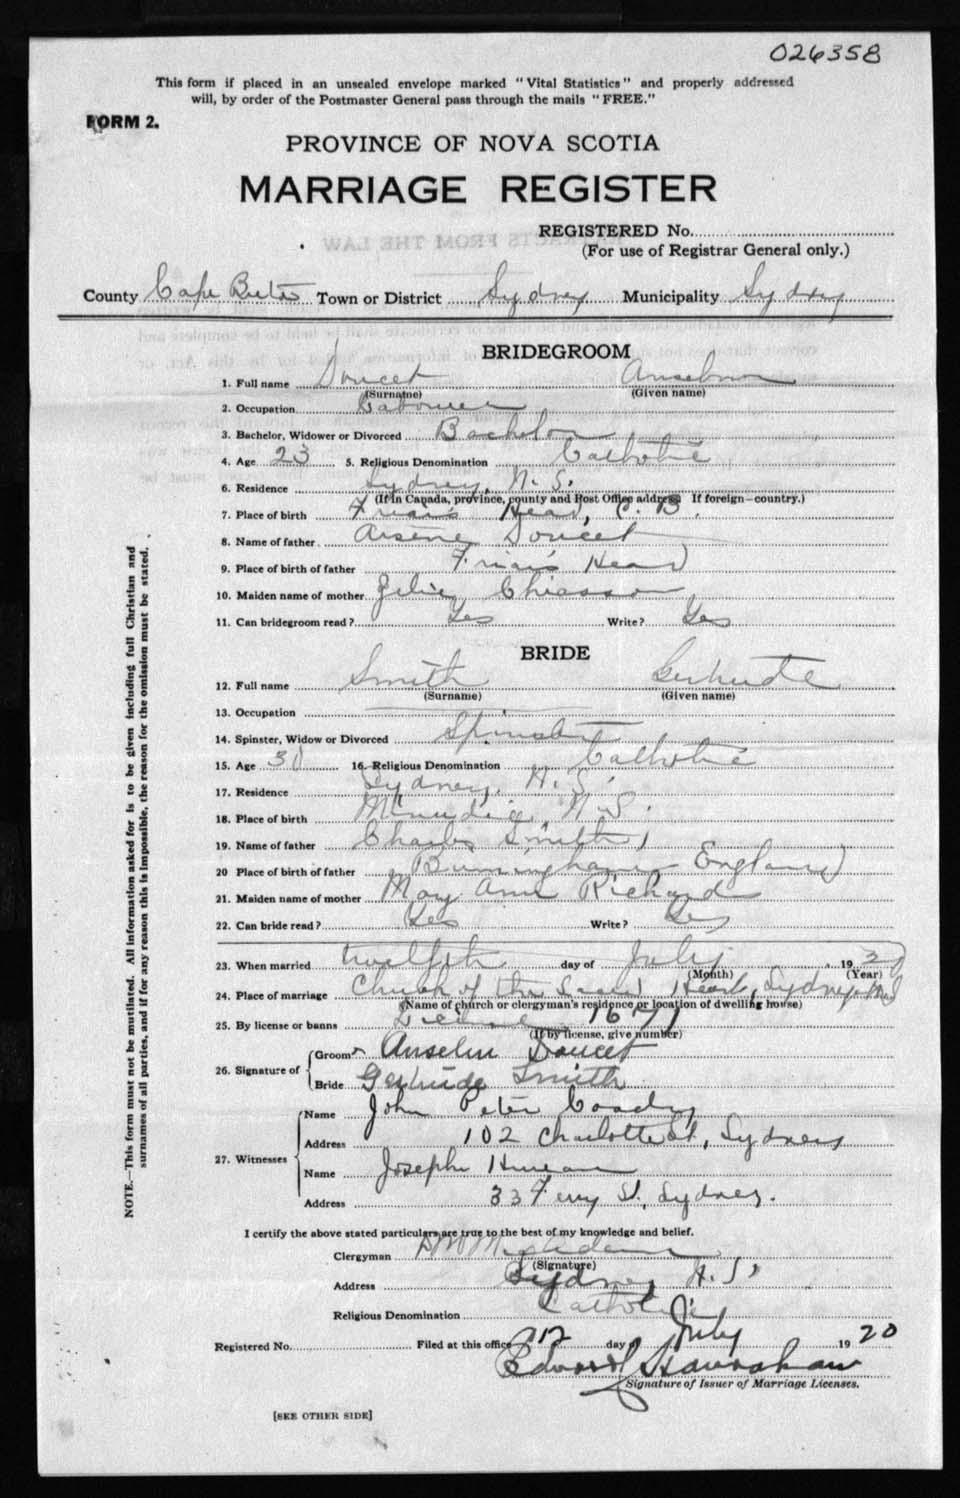 026358
This form if placed in an unsealed envelope marked "Vital Statistics" and properly addressed
will, by order of the Postmaster General pass through the mails "FREE."
FORM 2.
PROVINCE OF NOVA SCOTIA
MARRIAGE REGISTER
REGISTERED No.
(For use of Registrar General only.)
County Cape Breton Town or District Sydney Municipality Sydney
BRIDEGROOM
1. Full name Doucet Anselm
(Surname) (Given name)
2. Occupation Labourer
3. Bachelor, Widower or Divorced Bachelor
4. Age 23 5. Religious Denomination Catholic
6. Residence Sydney, N. S.
(If in Canada, province, county and Post Office address If foreign—country.)
7. Place of birth Friar's Head, C. B.
8. Name of father Arsene Doucet
9. Place of birth of father Friar's Head
10. Maiden name of mother Zelie Chiasson
11. Can bridegroom read? Yes Write? Yes
BRIDE
12. Full name Smith Gertrude
(Surname) (Given name)
13. Occupation
14. Spinster, Widow or Divorced Spinster
15. Age 30 16. Religious Denomination Catholic
17. Residence Sydney, N. S.
18. Place of birth Minudie, N. S.
19. Name of father Charles Smith
20 Place of birth of father Birmingham England
21. Maiden name of mother Mary Ann Richard
22. Can bride read? Yes Write? Yes
23. When married twelfth day of July 1920
(Month) (Year)
24. Place of marriage Church of the Sacred Heart, Sydney, N.S
(Name of church or clergyman's residence or location of dwelling house)
25. By license or banns License
(If by license, give number)
26. Signature of Groom Anselm Doucet
Bride Gertrude Smith
27. Witnesses Name John Peter Coady
Address 102 Charlotte St, Sydney
Name Joseph
Address 33 Ferry St, Sydney.
I certify the above stated particulars are true to the best of my knowledge and belief.
Clergyman
(Signature)
Address Sydney N. S.
Religious Denomination Catholic
Registered No. Filed at this office 12 day of July 1920
Edward Hanrahan
Signature of Issuer of Marriage Licenses.
[SEE OTHER SIDE]
NOTE.—This form must not be mutilated. All information asked for is to be given including full Christian and
surnames of all parties, and if for any reason this is impossible, the reason for the omission must be stated.